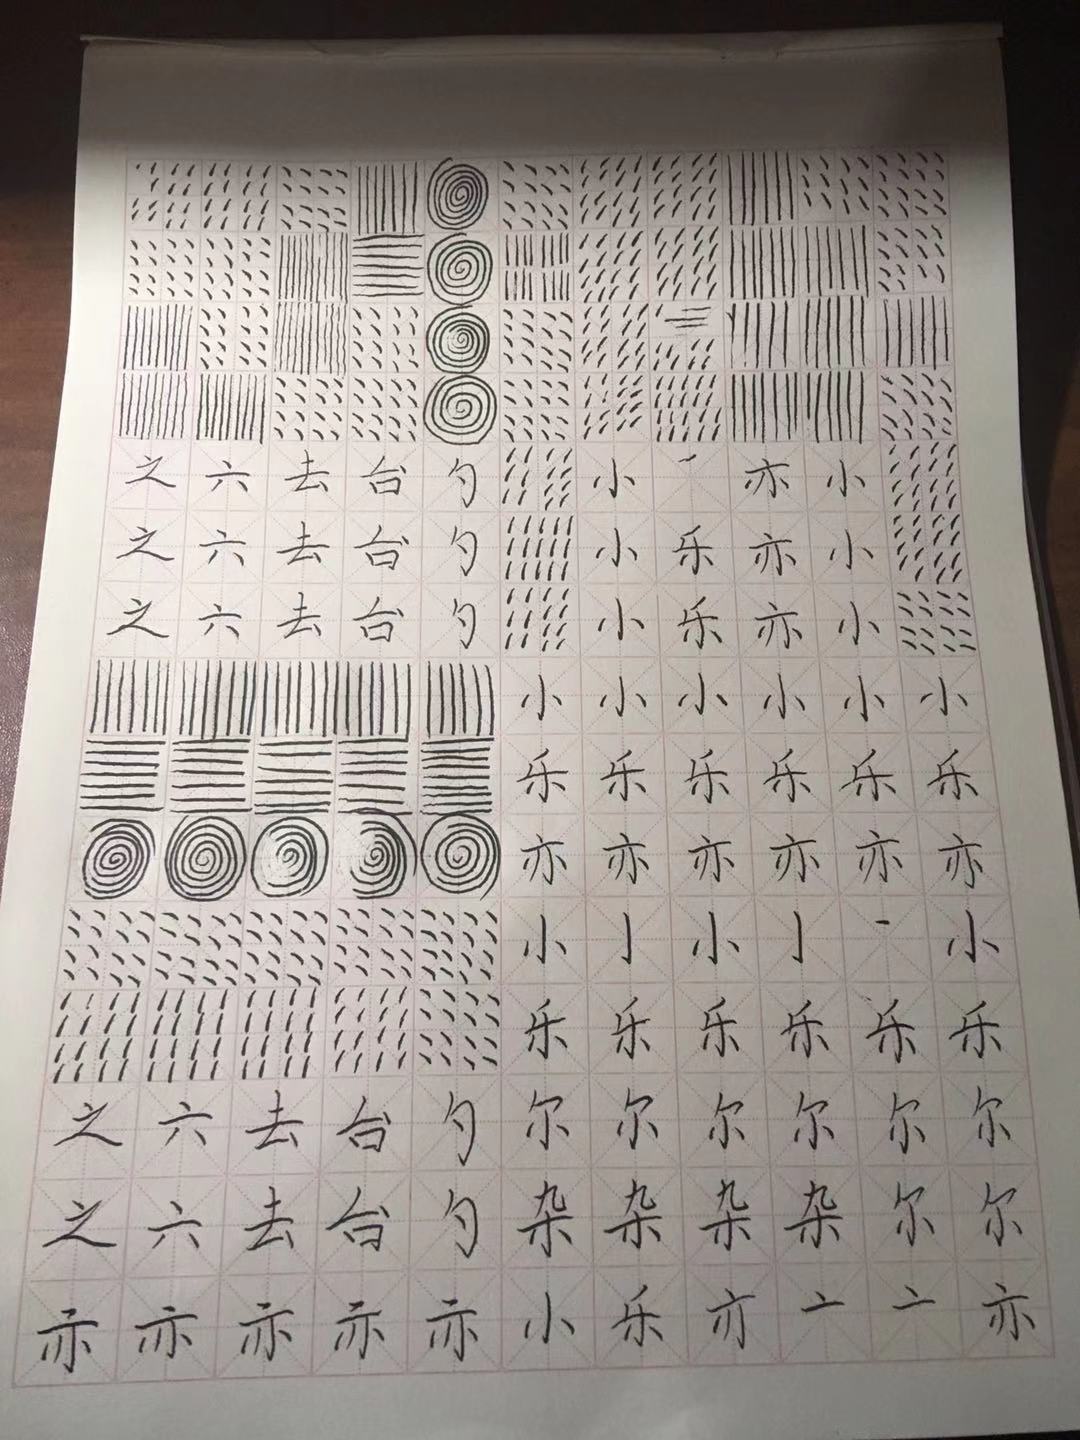 之 六 去 台 勺 小 亦 小
之 六 去 台 勺 小 乐 亦 小
之 六 去 台 勺 小 乐 亦 小
小 小 小 小 小 小
乐 乐 乐 乐 乐 乐
亦 亦 亦 亦 亦 亦
小 亅 小 亅 小
乐 乐 乐 乐 乐 乐
之 六 去 台 勺 尔 尔 尔 尔 尔 尔
之 六 去 台 勺 杂 杂 杂 杂 尔 尔
亦 亦 亦 亦 亦 小 乐 亠 亠 亦